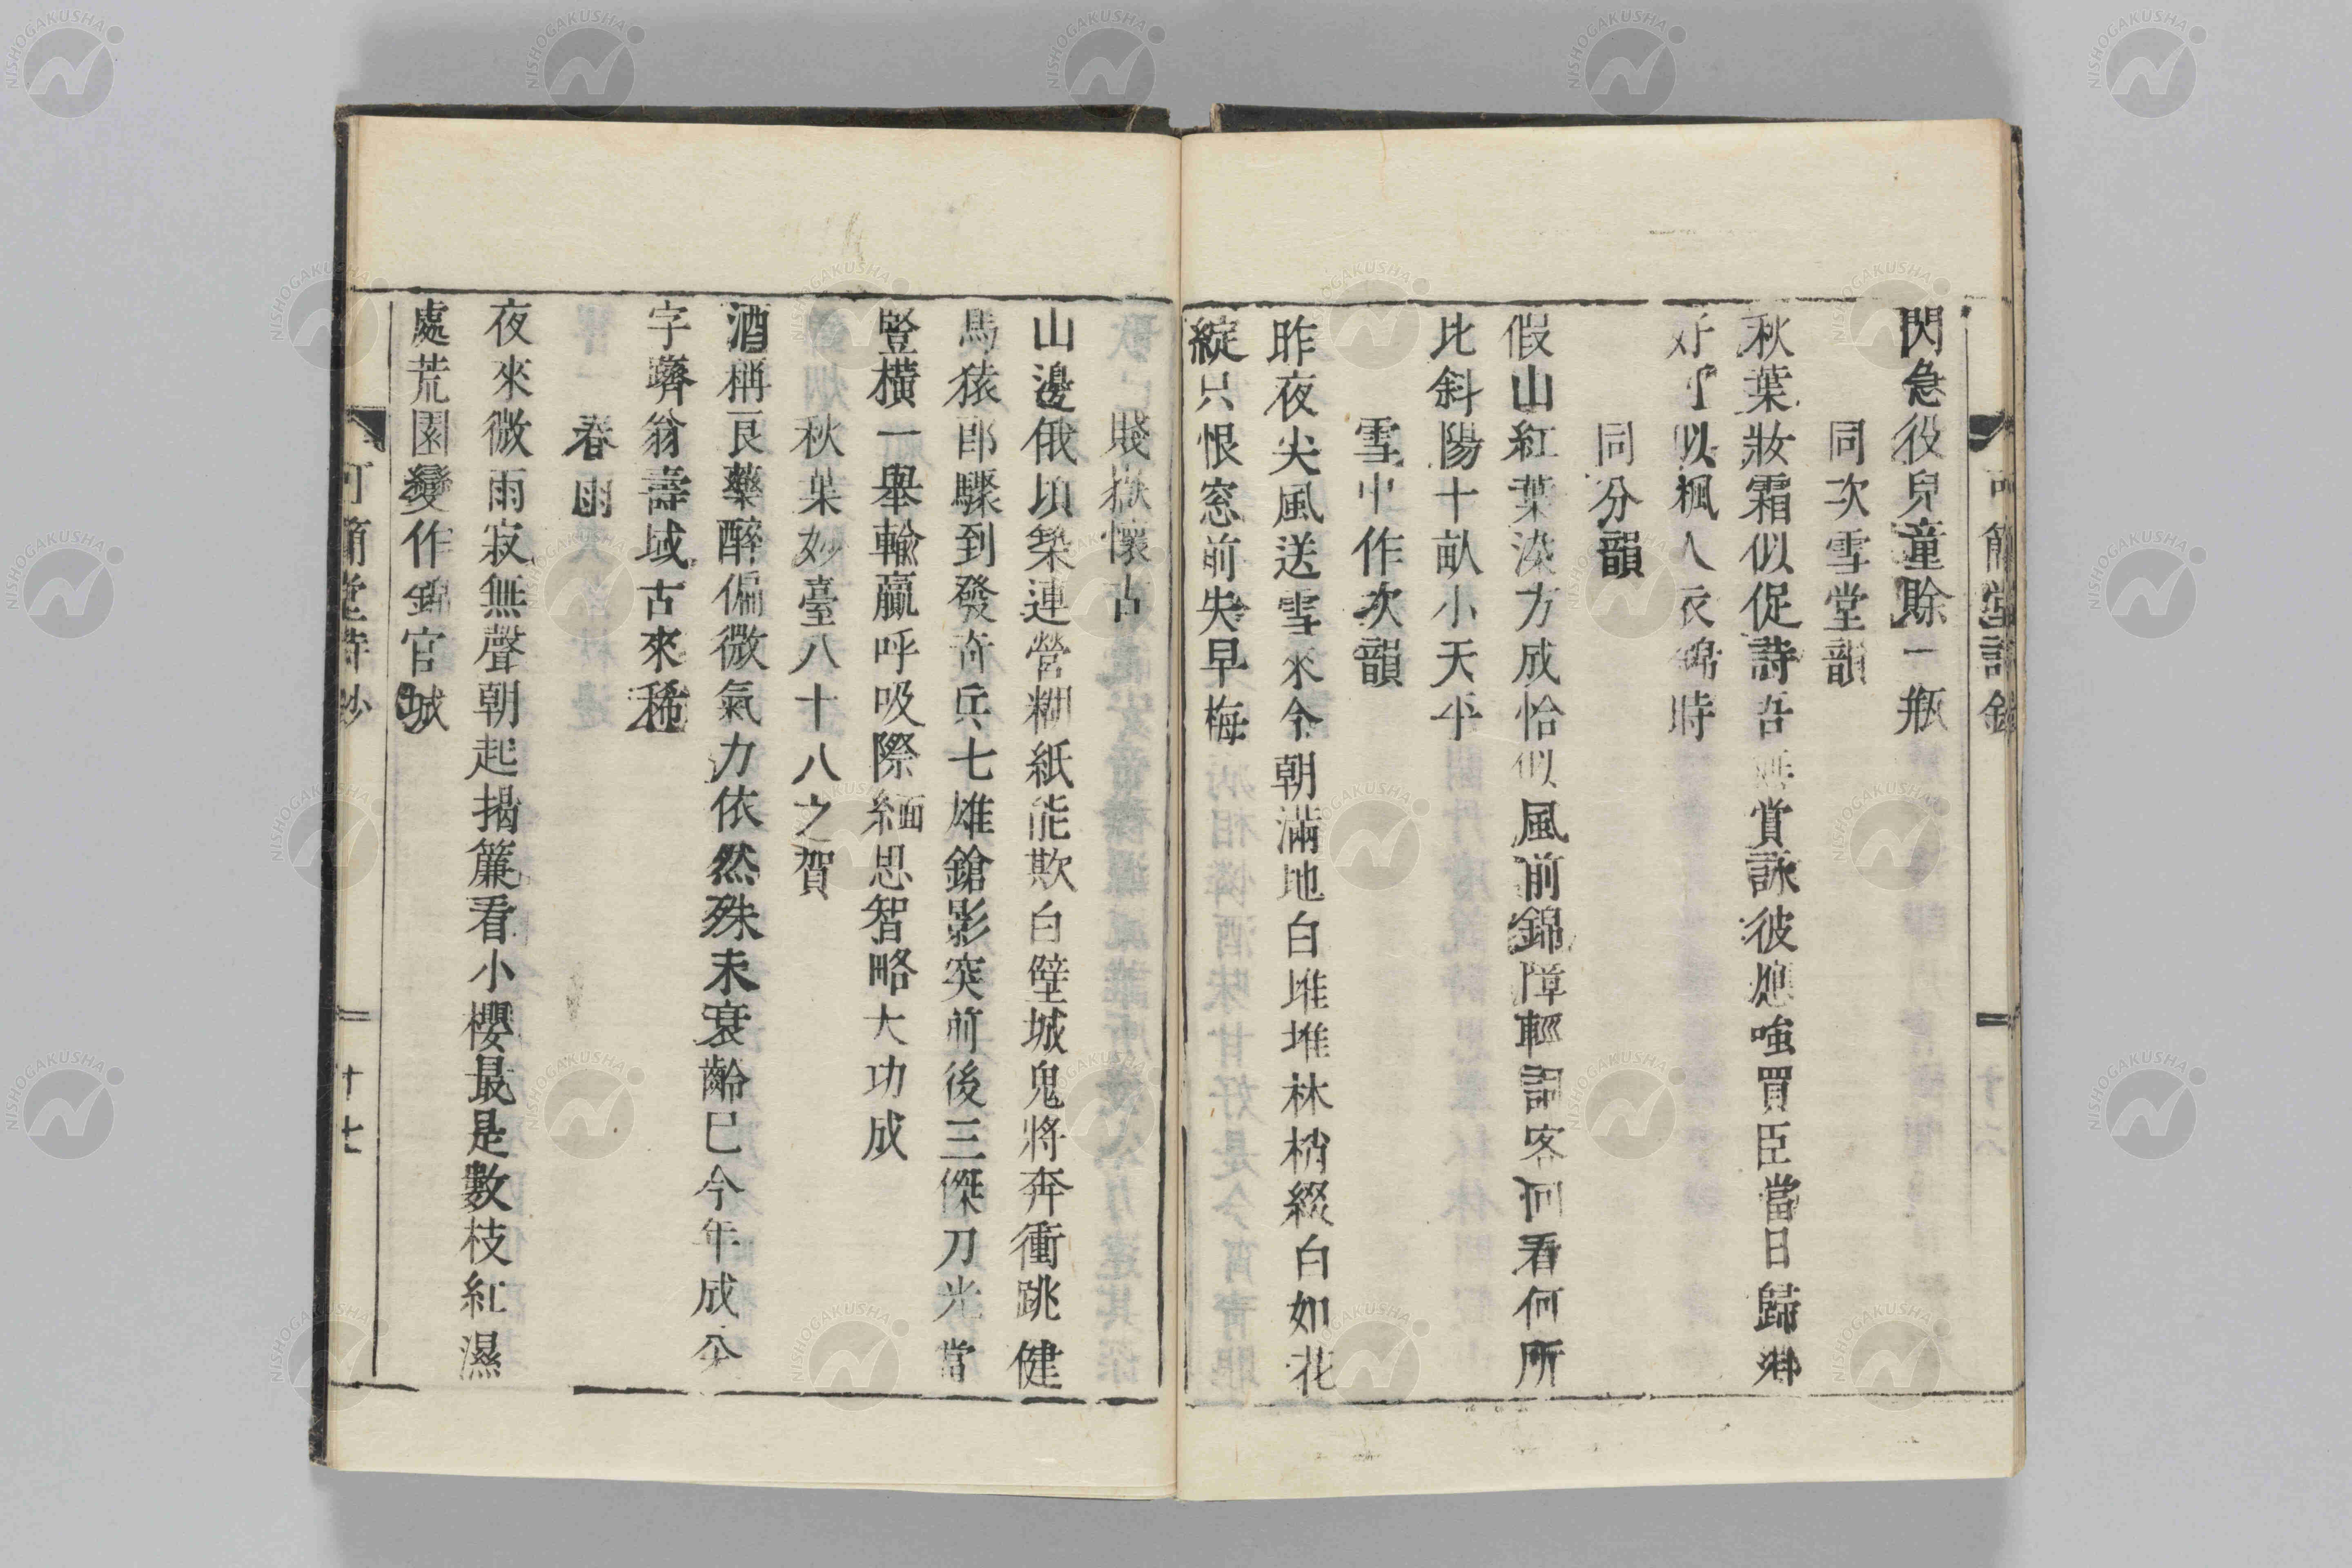 閃急役兒童賖一瓶
同次雪堂韻
秋葉妝霜似促詩吾無賞詠彼應嗤買臣當日歸鄉
好似楓人衣錦時
同分韻
假山紅葉染方成恰似風前錦障輕詞客何看何所
比斜陽十畝小天平
雪中作次韻
昨夜尖風送雪來今朝滿地白堆堆林梢綴白如花
綻只恨窓前失早梅
十六
賤嶽懷古
山邊俄頃築連營糊紙能欺白壁城鬼將奔衝跳健
馬猿郎驟到發奇兵七雄鎗影突前後三傑刀光當
豎橫一舉輸贏呼吸際緬思智略大功成
秋葉妙臺八十八之賀
酒稱良藥醉偏微氣力依然殊未衰齡已今年成㐂
字躋翁壽域古來稀
春雨
夜來微雨寂無聲朝起揭簾看小櫻最是數枝紅濕
處荒園變作錦官城
可簡堂詩鈔
十七
NISHOGAKUSHA